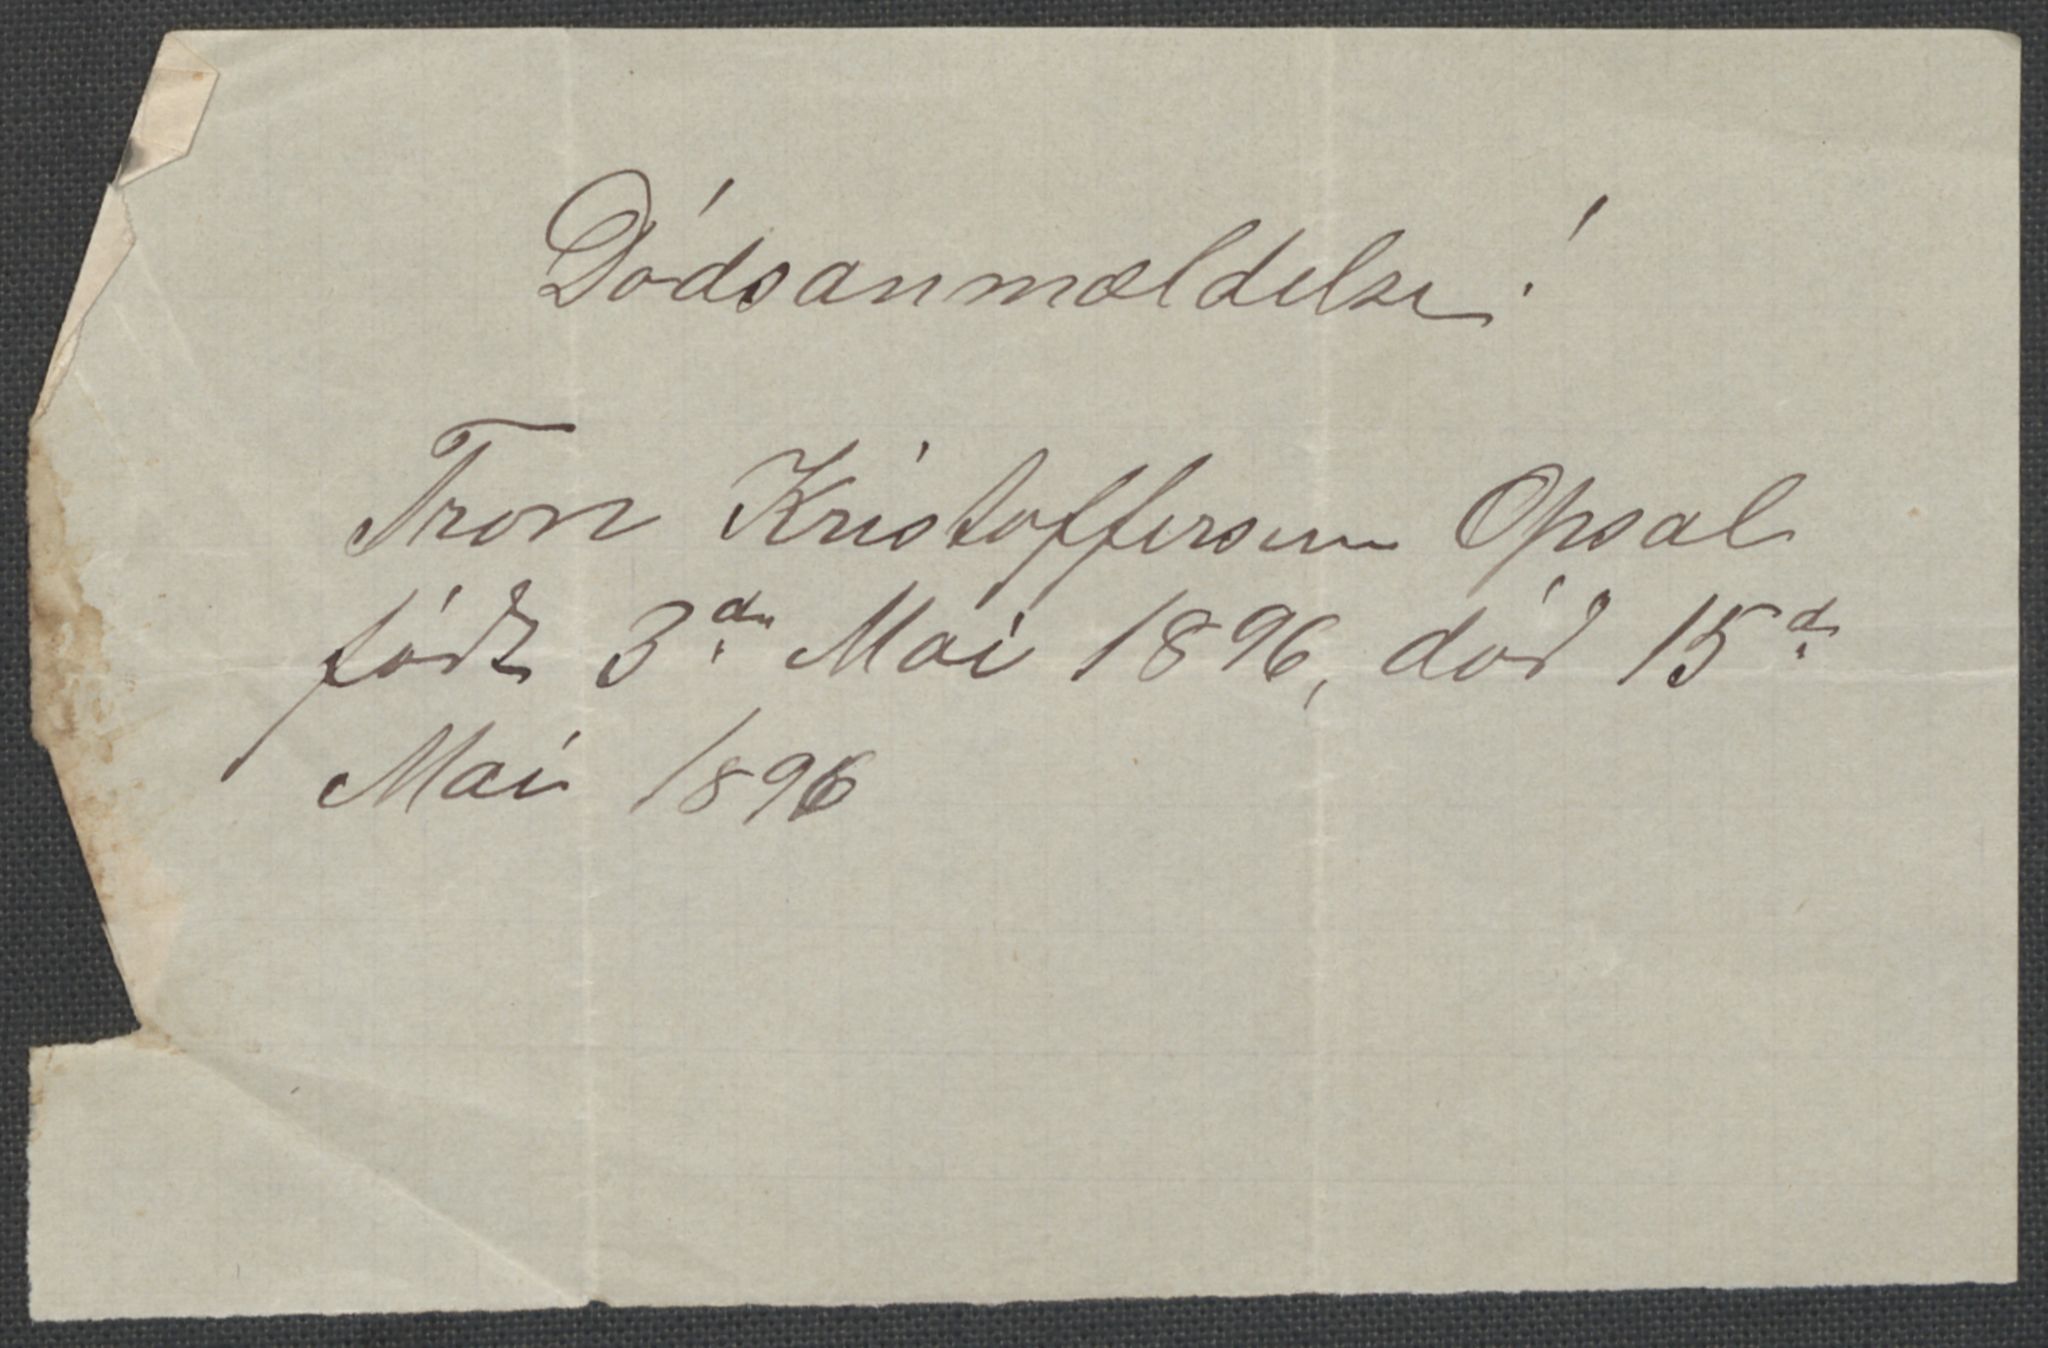 Dódsanmældelse!
Tron Kristoffersen Opsal
fódt 3de Mai 1896, dód 15de
Mai 1896